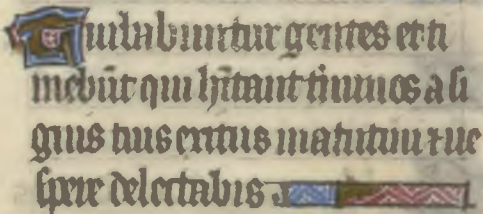 Turbabuntur gentes et ti
mebūt qui hītant t̄minos a si
gnis tuis exitus matutini ⁊ ue
spere delectabis